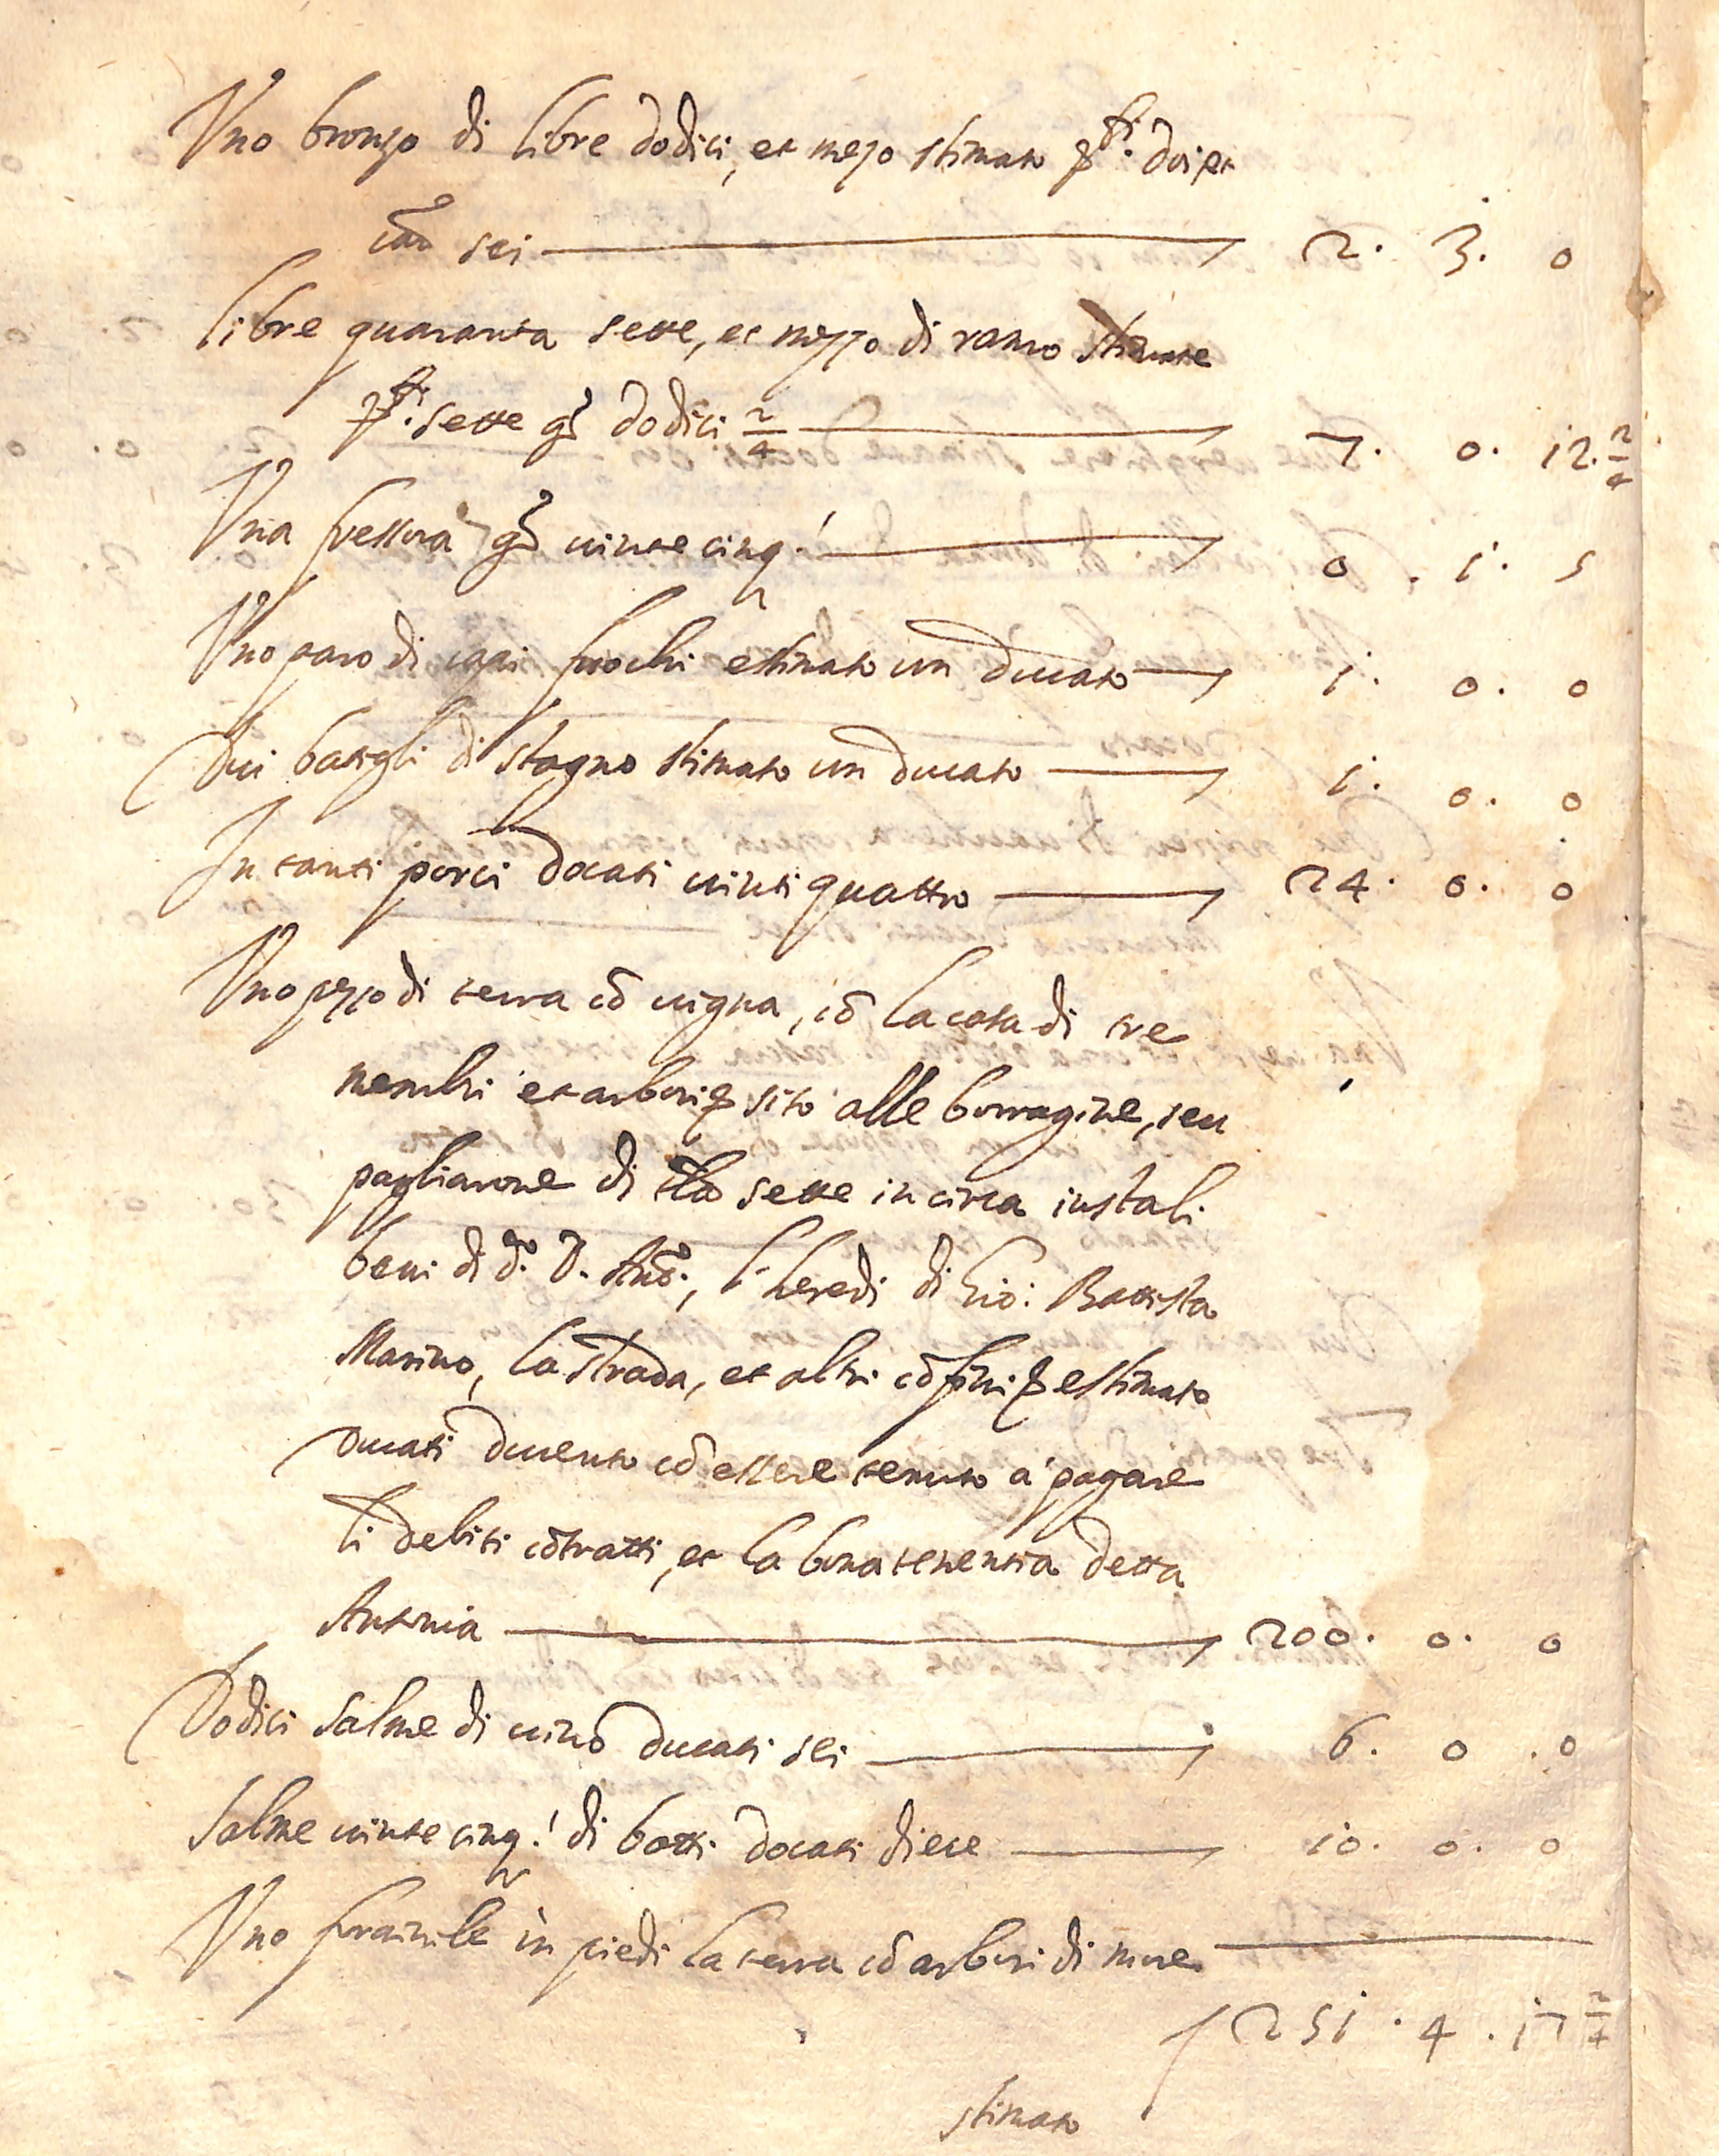 Uno bronzo di libre dodici, et mezo stimato doi et
sei 2. 3. 0
libre quaranta sette, et mezzo di ramo stimate
sette gr̃ dodici 2/4 7. 0. 12. 2/4
Una fressora gr̃ uinte cinq! 0. 1. 5
Uno paro di capi fuochi estimato un ducato 1. 0. 0
Dui basigli di stagno stimato un ducato 1. 0. 0
In tanti porci docati uinti quattro 24. 0. 0
Uno pezzo di terra cõ uigna, cõ la casa di tre
membri et arbori sito alle borragine, seu
pagliarone di sette in circa iusta li
beni di d.º D. Antõ., l'heredi di Gio: Battista
Marino, la strada, et altri cõfini estimato
Ducati ducento cõ essere tenuto à pagare
li debiti cõtratti, et la bona tenentia detta
Antonia 200. 0. 0
Dodici salme di uino ducati sei 6. 0. 0
Salme uinte cinq! di botti docati diece 10. 0. 0
Uno in piedi la terra cõ arbori di nuce
251. 4. 17 2/4
stimato